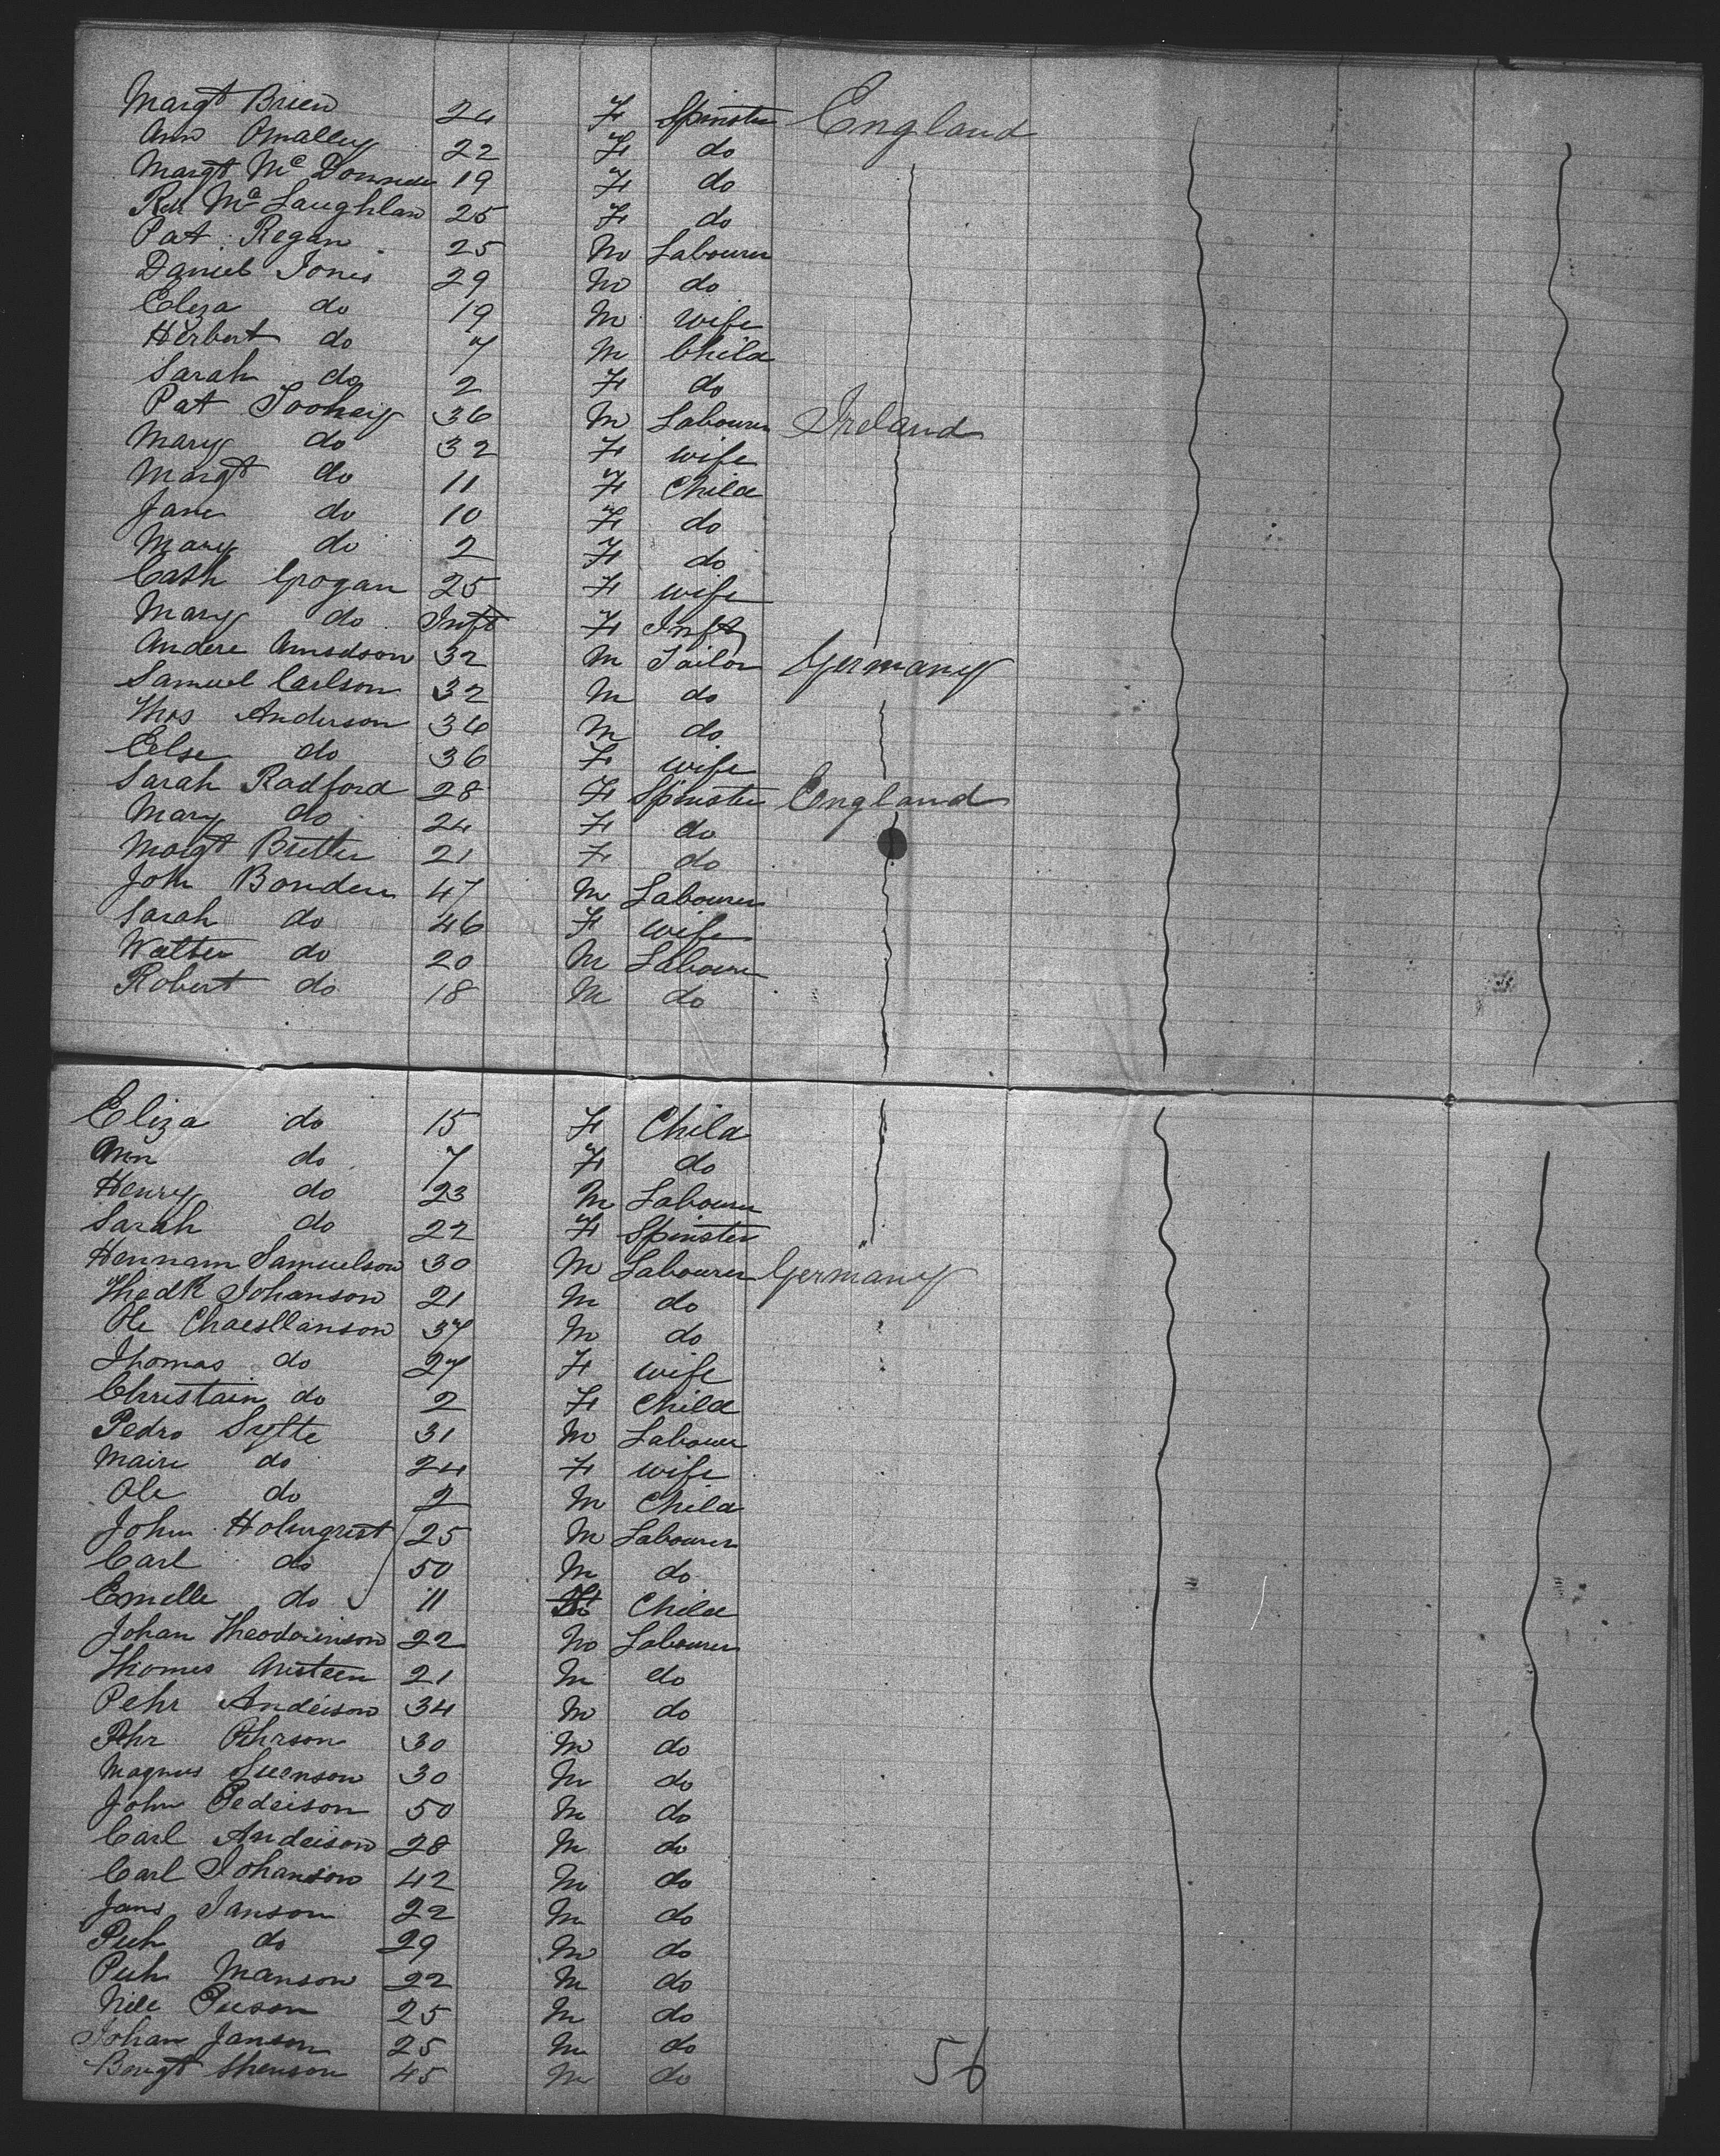 Margt Brien 24 F Spinster England
Ann Omalley 22 F do
Margt Mc Donnell 19 F do
Mc Laughlan 25 F do
Pat Regan 25 M Labourer
Daniel Jones 29 M do
Eliza do 19 M wife
Herbert do 7 M Child
Sarah do 2 F do
Pat Toohey 36 M Labourer Ireland
Mary do 32 F wife
Margt do 11 F Child
Jane do 10 F do
Mary do 2 F do
Cath Grogan 25 F wife
Mary do Inft F Inft
Andere Amsdson 32 M Tailor Germany
Samuel Carlson 32 M do
Thos Anderson 36 M do
Else do 36 F wife
Sarah Radford 28 F Spinster England
Mary do 24 F do
Margt Butler 21 F do
John Bonden 47 M Labourer
Sarah do 46 F wife
Walter do 20 M Labourer
Robert do 18 M do
Eliza do 15 F Child
Ann do 7 F do
Henry do 23 M Labourer
Sarah do 22 F Spinster
Hennam Samuelson 30 M Labourer Germany
Johanson 21 M do
Ole Chaesllanson 37 M do
Thomas do 27 F wife
Christain do 2 F Child
Pedro Sytte 31 M Labourer
Maire do 24 F wife
Ole do 2 M Child
John Holmgrist 25 M Labourer
Carl do 50 M do
Emelle do 11 Child
Johan Theodorinson 22 M Labourer
Thomes Austeen 21 M do
Pehr Anderson 34 M do
Pehr Pehrson 30 M do
Magnus Suenson 30 M do
John Pederson 50 M do
Carl Anderson 28 M do
Carl Johanson 42 M do
Jans Janson 22 M do
Peh do 29 M do
Peh Manson 22 M do
Nill 25 M do
Johan Janson 25 M do
Bengt Shenson 45 M do
56